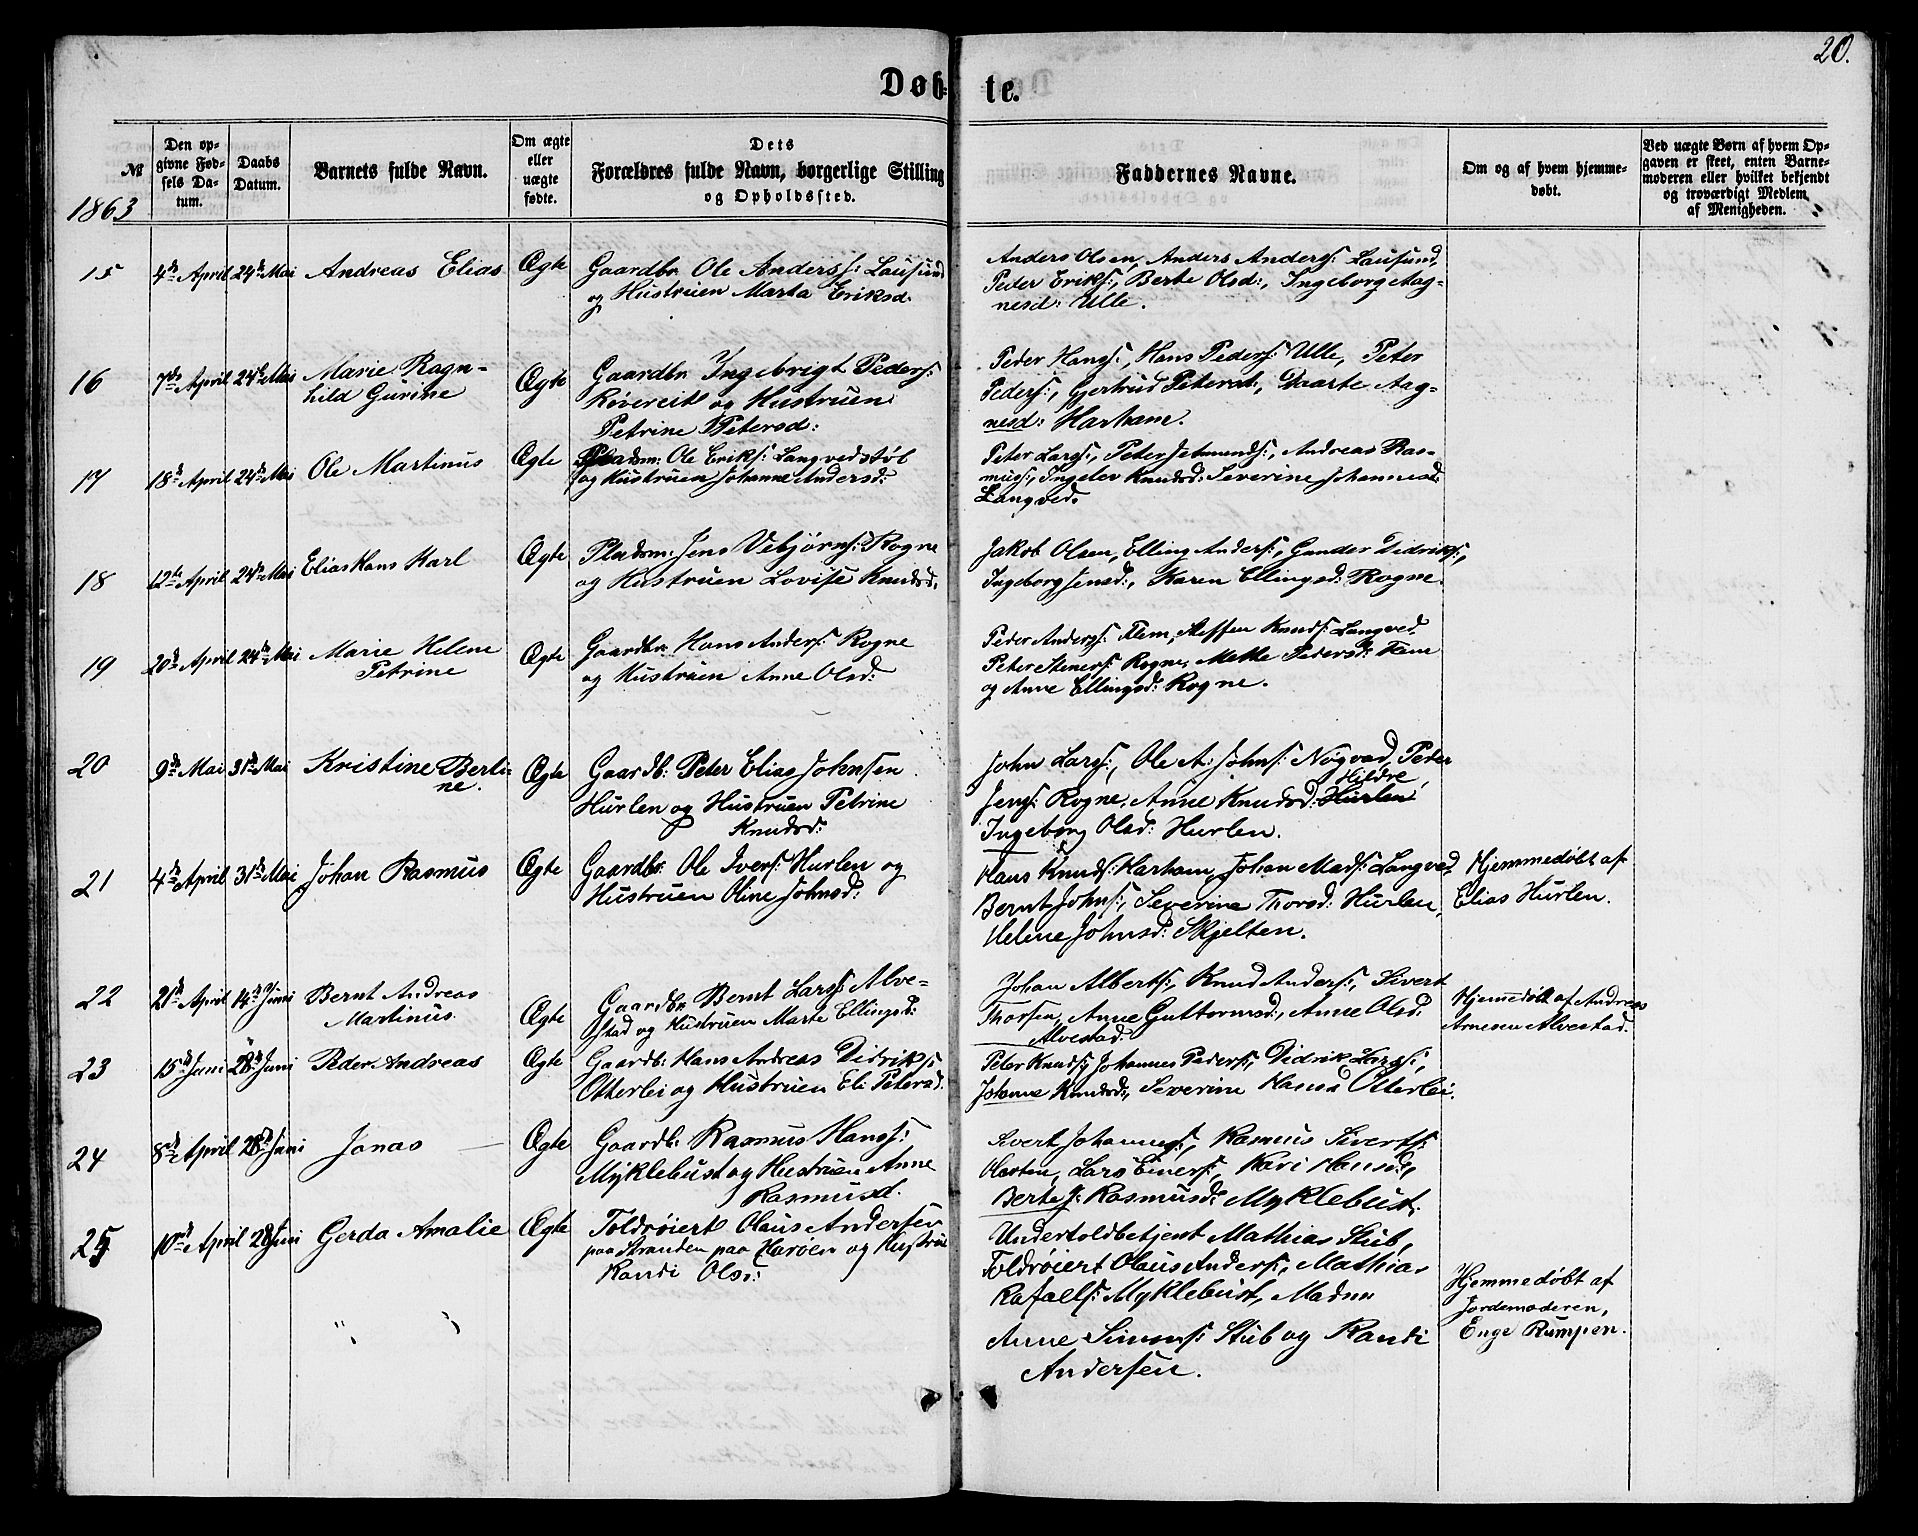 20.
Døbte.
1863
№
Den opgivne Fødsels Datum.
Daabs Datum.
Barnets fulde Navn.
Om ægte eller uægte fødte.
Dets Forældres fulde Navn, borgerlige Stilling og Opholdssted.
Faddernes Navne.
Om og af hvem hjemmedøbt.
Ved uægte Børn af hvem Opgaven er skeet, enten Barnemoderen eller hvilket bekjendt og troværdigt Medlem af Menigheden.
15 4de April 24de Mai Andreas Elias Ægte
Gaardbr. Ole Anderss: Lausund
og Hustruen Marta Eriksd:
Anders Olsen, Anders Anderss: Lausund,
Peder Eriks:, Berte Olsd:, Ingeborg Aag-
nesd: Ulle.
16 7de April 24de Mai Marie Ragn-
hild Gurine Ægte
Gaardbr. Ingebrigt Peders:
Røvereit og Hustruen
Petrine Petersd:
Peder Hans:, Hans Peders: Ulle, Peter
Peders:, Gjertrud Petersd:, Maarte Aag-
nesd: Harham.
17 18de April 24de Mai Ole Martinus Ægte
Pladsm: Ole Eriks: Langvedstøl
og Hustruen Johanne Andersd:
Peter Lars:, Peter Jetmunds:, Andreas Ras-
mus:, Ingelev Knudsd: Severine Johannesd:
Langved.
18 12te April 24de Mai Elias Hans Karl Ægte
Pladsm: Jens Vebjørns: Rogne
og Hustruen Lovise Knudsd:
Jakob Olsen, Elling Anders:, Gunder Didriks:,
Ingeborg Jensd:, Karen Ellingsd: Rogne.
19 20de April 24de Mai Marie Helene
Petrine Ægte
Gaardbr. Hans Anders: Rogne
og Hustruen Anne Olsd:
Peder Anders: Flem, Steffen Knuds: Langved,
Peter Steners: Rogne, Mette Pedersd: Flem
og Anne Ellingsd: Rogne.
20 9de Mai 31te Mai Kristine Berti-
ne. Ægte
Gaardb: Peter Elias Johnsen
Hurlen og Hustruen Petrine
Knudsd:
John Lars:, Ole A: Johns: Nogvad, Peter
Jens: Rogne, Anne Knudsd: Hurlen Hildre,
Ingeborg Olsd: Hurlen.
21 4de April 31te Mai Johan Rasmus Ægte
Gaardbr: Ole Ivers: Hurlen og
Hustruen Oline Johnsd:
Hans Knuds: Harham, Johan Mads: Langved,
Bernt Johns:, Severine Thorsd: Hurlen,
Helene Johnsd: Skjelten.
Hjemmedøbt af
Elias Hurlen.
22 21de April 14de Juni Bernt Andreas
Martinus. Ægte
Gaardbr. Bernt Lars: Alve-
stad og Hustruen Marte Ellingsd:
Johan Alberts:, Knud Anders:, Sivert
Thorsen, Anne Guttormsd:, Anne Olsd:
Alvestad.
Hjemmedøbt af Andreas
Arnesen Alvestad.
23 15de Juni 28de Juni Peder Andreas Ægte
Gaardb: Hans Andreas Didriks:
Otterlei og Hustruen Eli Petersd.
Peter Knuds:, Johannes Peders:, Didrik Lars:,
Johanne Knudsd:, Severine Hansd Otterlei.
24 8de April 28de Juni Jonas Ægte
Gaardb: Rasmus Hans:
Myklebust og Hustruen Anne
Rasmusd.
Sivert Johannes:, Rasmus Siverts:
Harten, Lars Einers:, Kari Hansd:,
Berte J: Rasmusd: Myklebust.
25 10de April 28de Juni Gerda Amalie Ægte
Toldrøiert Olaus Andersen
paa Stranden paa Harøen og Hustrue
Randi Olsd:
Undertoldbetjent Mathias Stub,
Toldrøiert Olaus Anders:, Mathias
Rafaels: Myklebust, Madm
Anne Simons: Stub og Randi
Andersen.
Hjemmedøbt af
Jordemoderen,
Enge Rumpen.